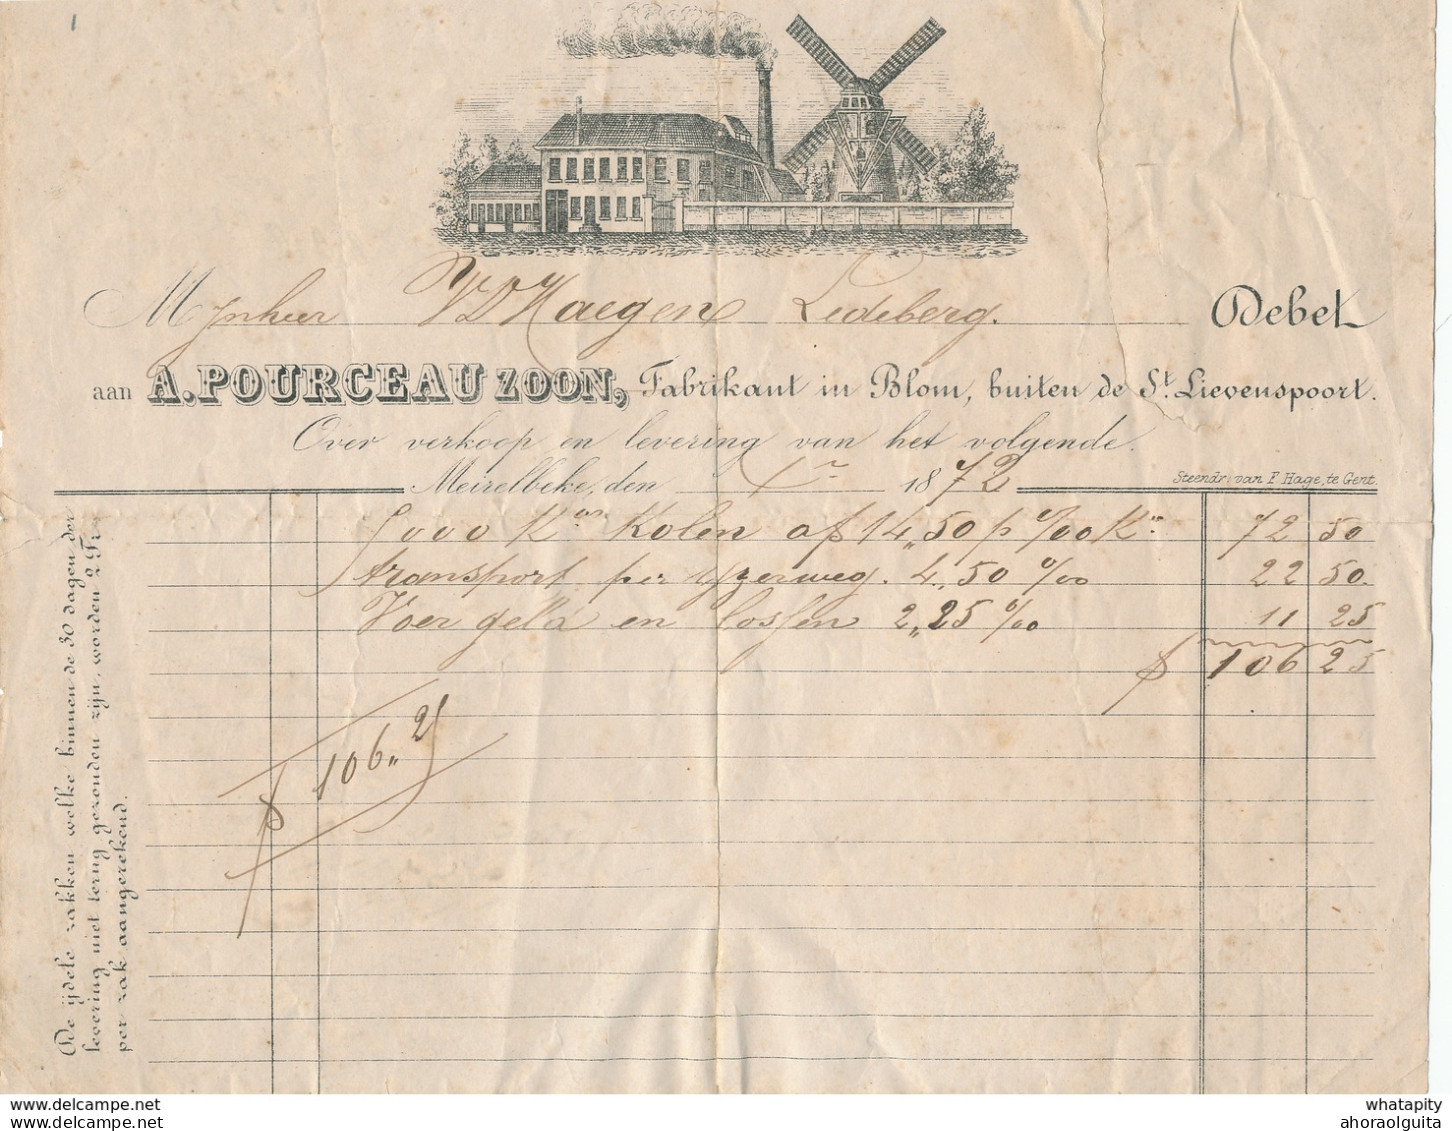 1
Mynheer VDHaegen Ledeberg. Debet
aan A. POURCEAU ZOON, Fabrikant in Blom, buiten de St. Lievenspoort.
Over verkoop en levering van het volgende.
Meirelbeke, den 1872
Steendr. van F. Hage, te Gent.
5000 Kos Kolen a f 14,,50 p %00 Ko 72 50
transport per yzerweg. 4,,50 %00 22 50.
Voer geld en lossen 2,,25 %00 11 25
f 106 25
f 106,,25
De ijdele zakken welke binnen de 30 dagen der
levering niet terug gezonden zijn, worden 2 Fr.
per zak aangerekend.
whatapity
ahoraolguita